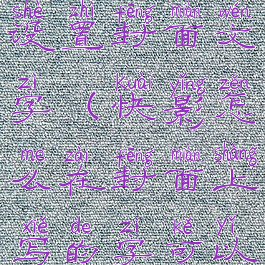 shè zhì fēng miàn wén
设置封面文
zì kuài yǐng zěn
字（快影怎
me zài fēng miàn shàng
么在封面上
xiě de zì kě yǐ
写的字可以